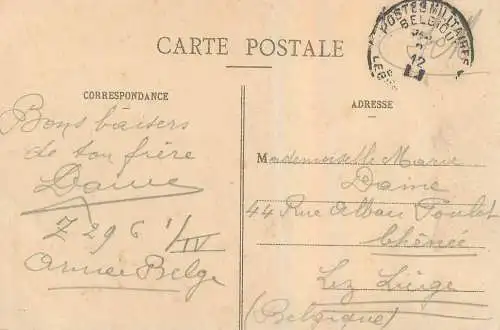 CARTE POSTALE
POSTES MILITAIRES
BELGIQUE
12
CORRESPONDANCE
Bons baisers
de ton frère
Daine
Z 296 1/IV
Armée Belge
ADRESSE
Mademoiselle Marie
Daine
44 Rue Alban Poulet
Chênée
Lez Liège
(Belgique)